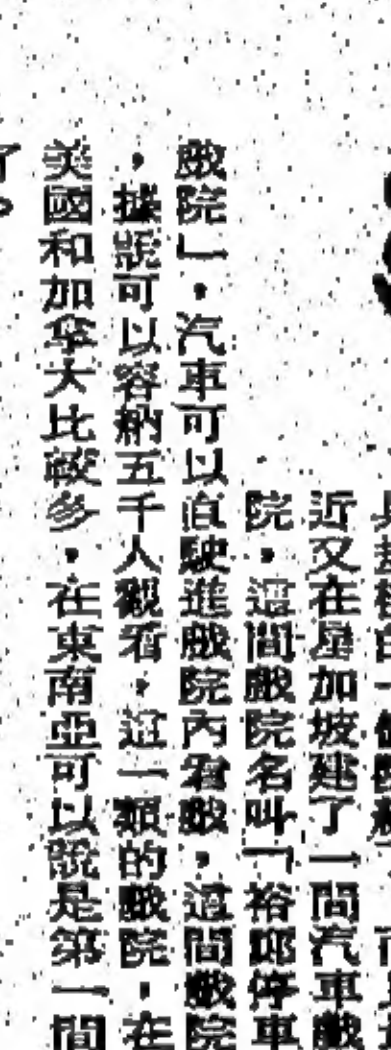 近又在星加坡建了一間汽車戲
院，這間戲院名叫「裕廊停車
戲院」，汽車可以直駛進戲院內看戲，這間戲院
，據說可以容納五千人觀看，這一類的戲院，在
美國和加拿大比較多，在東南亞可以說是第一間
了。